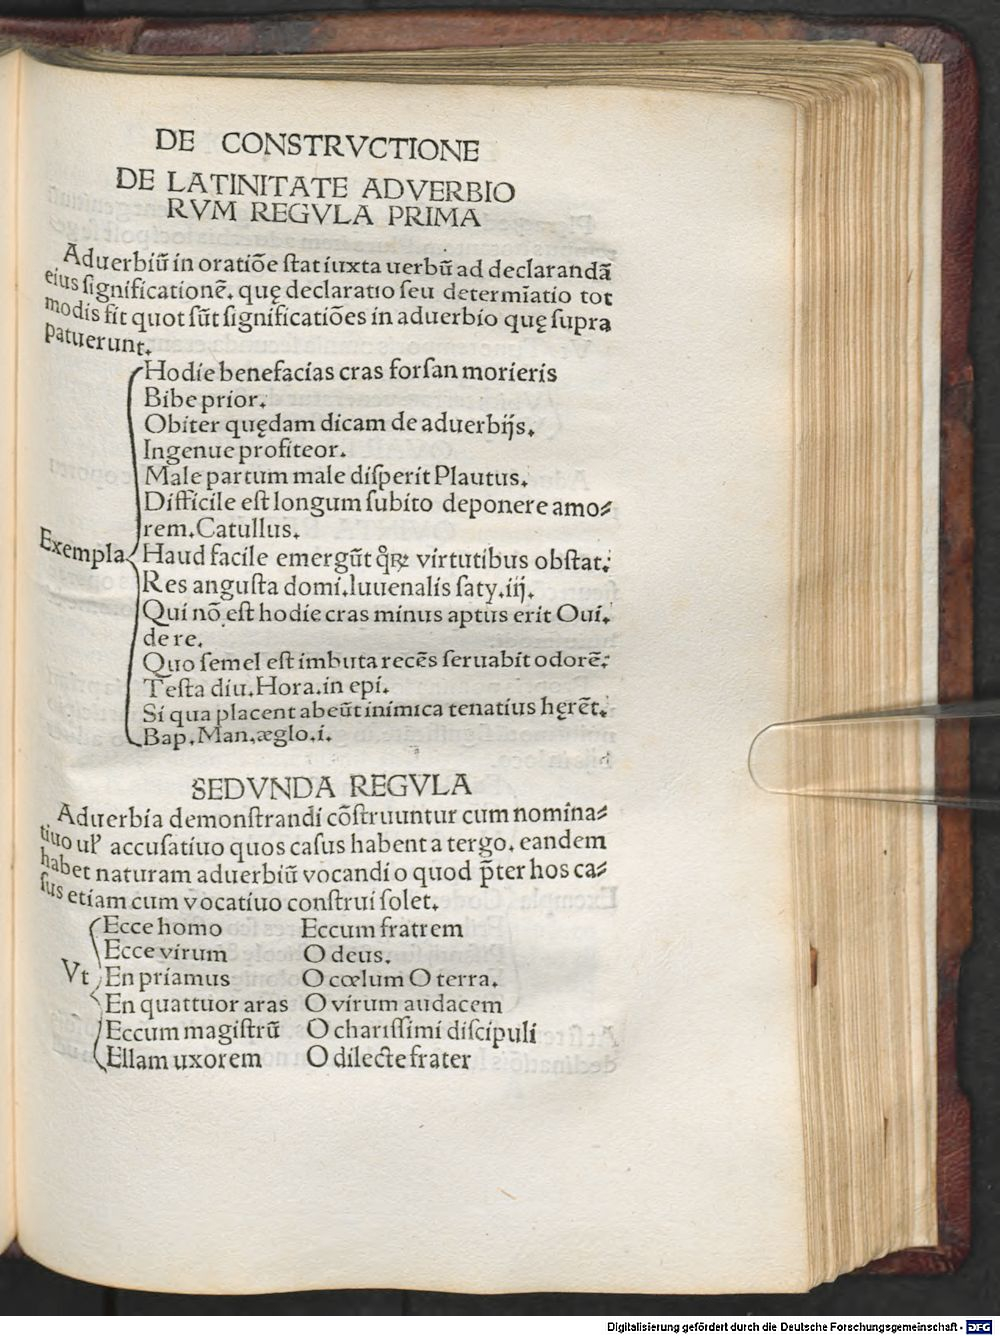 DE CONSTRVCTIONE
DE LATINITATE ADVERBIO
RVM REGVLA PRIMA
Aduerbiū in oratiōe stat iuxta uerbū ad declarandā
eius significationē. quę declaratio seu determīatio tot
modis fit quot sūt significatiōes in aduerbio quę supra
patuerunt.
Hodie benefacias cras forsan morieris
Bibe prior.
Obiter quędam dicam de aduerbijs.
Ingenue profiteor.
Male partum male disperit Plautus.
Difficile est longum subito deponere amo⸗
rem. Catullus.
Exempla Haud facile emergūt qꝝ virtutibus obstat.
Res angusta domi. Iuuenalis saty. iij.
Qui nō est hodie cras minus aptus erit Oui.
de re.
Quo semel est imbuta recēs seruabit odorē.
Testa diu. Hora. in epi.
Si qua placent abeūt inimica tenatius hęrēt.
Bap. Man. æglo. i.
SEDVNDA REGVLA
Aduerbia demonstrandi cōstruuntur cum nomina⸗
tiuo ul' accusatiuo quos casus habent a tergo. eandem
habet naturam aduerbiū vocandi o quod p̄ter hos ca⸗
sus etiam cum vocatiuo construi solet.
Ecce homo Eccum fratrem
Ecce virum O deus.
Vt En priamus O cœlum O terra.
En quattuor aras O virum audacem
Eccum magistrū O charissimi discipuli
Ellam uxorem O dilecte frater
Digitalisierung gefördert durch die Deutsche Forschungsgemeinschaft - DFG